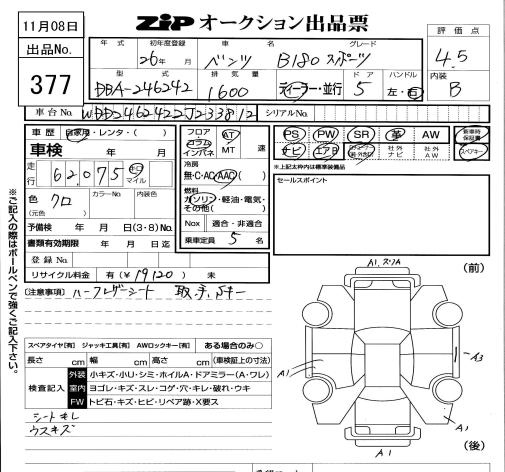 11月08日
ZiP オークション出品票
出品No.
377
年式 初年度登録 車名 グレード
26年 月 ベンツ B180 スポーツ
評価点
4.5
型式 排気量 ドア ハンドル
DBA-246242 1600 ディーラー・並行 5 左・右
内装
B
車台No. WDD2462422J233812 シリアルNo.
車歴 自家用・レンタ・( )
車検 年 月
走行 62,075 キロ マイル
色 クロ カラーNo. 内装色
(元色)
予備検 年 月 日(3・8)No.
書類有効期限 年 月 日迄
登録No.
リサイクル料金 有(¥19120) 未
フロア コラム インパネ AT MT 速
冷房
無・C・AC・AAC( )
燃料
ガソリン・軽油・電気・その他( )
Nox 適合・非適合
乗車定員 5 名
PS PW SR 革 AW 新車時保証書
ナビ エアB 社外ナビ 社外AW スペアキー
*上記太枠内は標準装備品
セールスポイント
※ご記入の際はボールペンで強くご記入下さい。
(注意事項) ハーフレザーシート 取、予、Sキー
スペアタイヤ【有】 ジャッキ工具【有】 AWロックキー【有】 ある場合のみ○
長さ cm 幅 cm 高さ cm (車検証上の寸法)
検査記入
外装 小キズ・小U・シミ・ホイルA・ドアミラー(A・ワレ)
室内 ヨゴレ・キズ・スレ・コゲ・穴・キレ・破れ・ウキ
FW トビ石・キズ・ヒビ・リペア跡・X要ス
シートキレ
ウスキズ
A1.スリA
(前)
A3
A1
A1
A1
(後)